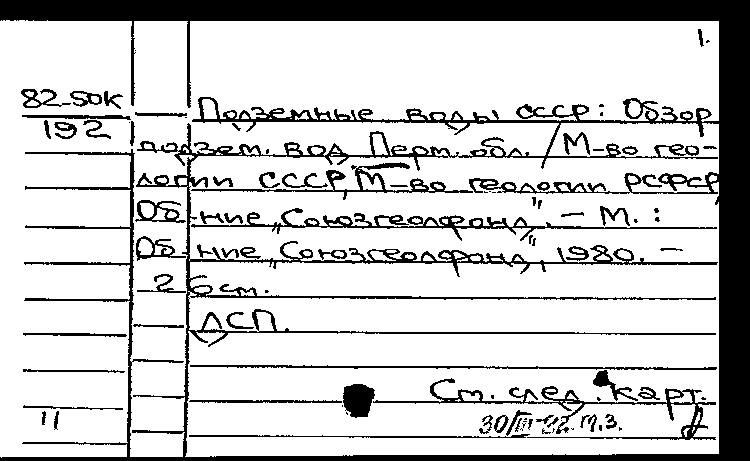 1.
82-50К
192
Подземные воды СССР: Обзор
подзем. вод Перм. обл. / М-во гео-
логии СССР, М-во геологии РСФСР,
Об-ние „Союзгеолфонд". — М. :
Об-ние „Союзгеолфонд", 1980. —
26 ст.
ДСП.
См. след. карт.
11
30/III-82 г.